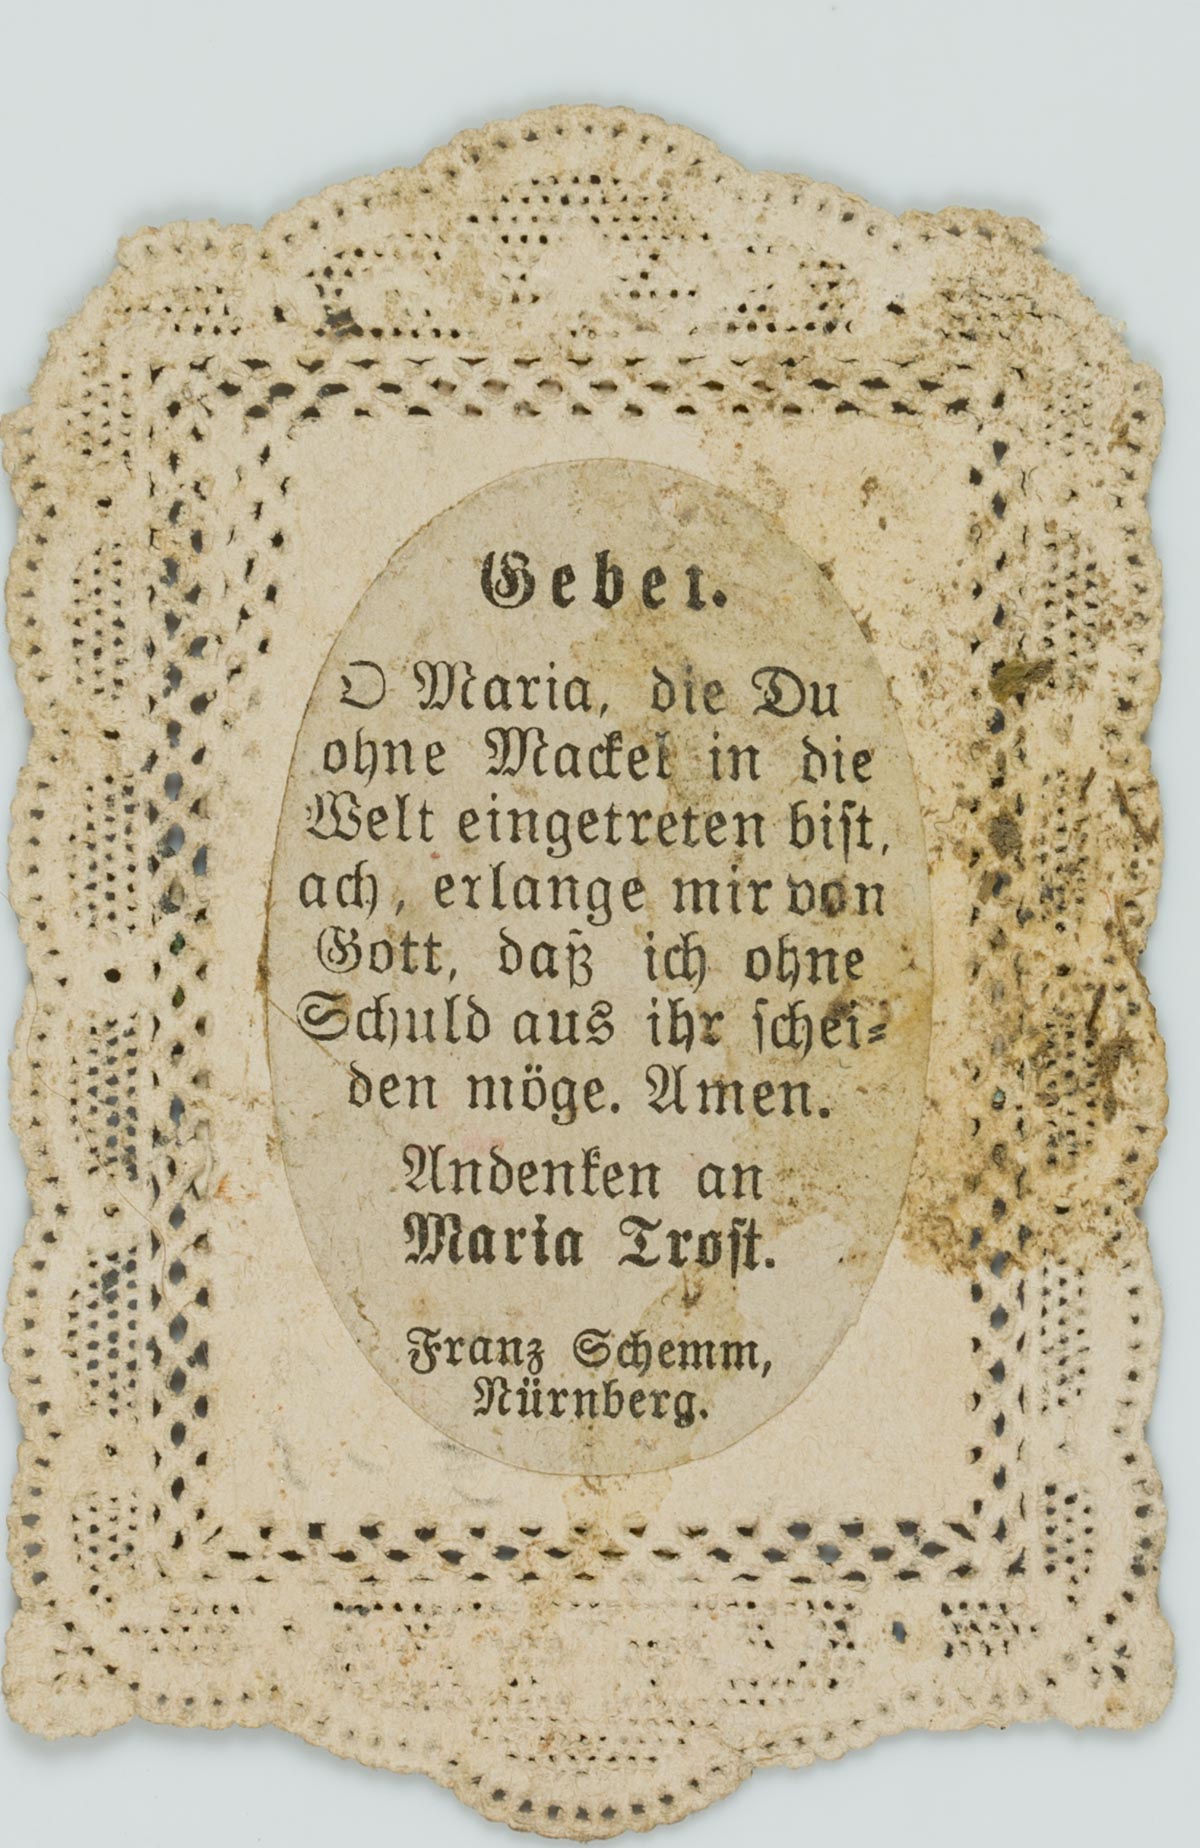 Gebet.
O Maria, die Du
ohne Mackel in die
Welt eingetreten bist,
ach, erlange mir von
Gott, daß ich ohne
Schuld aus ihr schei-
den möge. Amen.
Andenken an
Maria Trost.
Franz Schemm,
Nürnberg.